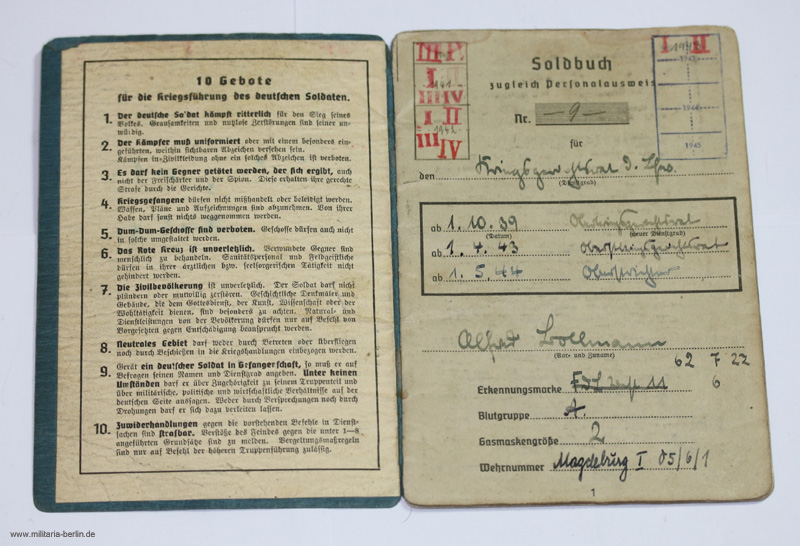 10 Gebote
für die Kriegsführung des deutschen Soldaten.
1. Der deutsche Soldat kämpft ritterlich für den Sieg seines
Volkes. Grausamkeiten und nutzlose Zerstörungen sind seiner un-
würdig.
2. Der Kämpfer muß uniformiert oder mit einem besonders ein-
geführten, weithin sichtbaren Abzeichen versehen sein.
Kämpfen in Zivilkleidung ohne ein solches Abzeichen ist verboten.
3. Es darf kein Gegner getötet werden, der sich ergibt, auch
nicht der Freischärler und der Spion. Diese erhalten ihre gerechte
Strafe durch die Gerichte.
4. Kriegsgefangene dürfen nicht mißhandelt oder beleidigt werden.
Waffen, Pläne und Aufzeichnungen sind abzunehmen. Von ihrer
Habe darf sonst nichts weggenommen werden.
5. Dum-Dum-Geschosse sind verboten. Geschosse dürfen auch nicht
in solche umgestaltet werden.
6. Das Rote Kreuz ist unverletzlich. Verwundete Gegner sind
menschlich zu behandeln. Sanitätspersonal und Feldgeistliche
dürfen in ihrer ärztlichen bzw. seelsorgerischen Tätigkeit nicht
gehindert werden.
7. Die Zivilbevölkerung ist unverletzlich. Der Soldat darf nicht
plündern oder mutwillig zerstören. Geschichtliche Denkmäler und
Gebäude, die dem Gottesdienst, der Kunst, Wissenschaft oder der
Wohltätigkeit dienen, sind besonders zu achten. Natural- und
Dienstleistungen von der Bevölkerung dürfen nur auf Befehl von
Vorgesetzten gegen Entschädigung beansprucht werden.
8. Neutrales Gebiet darf weder durch Betreten oder Überfliegen
noch durch Beschießen in die Kriegshandlungen einbezogen werden.
9. Gerät ein deutscher Soldat in Gefangenschaft, so muß er auf
Befragen seinen Namen und Dienstgrad angeben. Unter keinen
Umständen darf er über Zugehörigkeit zu seinem Truppenteil und
über militärische, politische und wirtschaftliche Verhältnisse auf der
deutschen Seite aussagen. Weder durch Versprechungen noch durch
Drohungen darf er sich dazu verleiten lassen.
10. Zuwiderhandlungen gegen die vorstehenden Befehle in Dienst-
sachen sind strafbar. Verstöße des Feindes gegen die unter 1—8
angeführten Grundsätze sind zu melden. Vergeltungsmaßregeln
sind nur auf Befehl der höheren Truppenführung zulässig.
www.militaria-berlin.de
III
I
1941
III IV
I II
1942
III IV
I II
1943
1944
1945
Soldbuch
zugleich Personalausweis
Nr. - 9 -
für
den Kriegsgerichtsrat d. Lw.
(Dienstgrad)
ab 1.10.39 Oberkriegsgerichtsrat
(Datum) (neuer Dienstgrad)
ab 1.4.43 Oberstkriegsgerichtsrat
ab 1.5.44 Oberstrichter
Alfred Bollmann
(Vor- und Zuname)
62 7 22
Erkennungsmarke 11 6
Blutgruppe A
Gasmaskengröße 2
Wehrnummer Magdeburg I 05/6/1
1